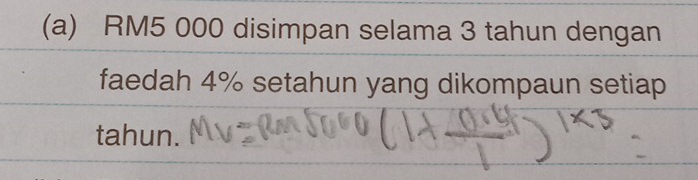 (a) RM5 000 disimpan selama 3 tahun dengan
faedah 4% setahun yang dikompaun setiap
tahun. MV=RM5000(1+0.4/1)^1×3 =